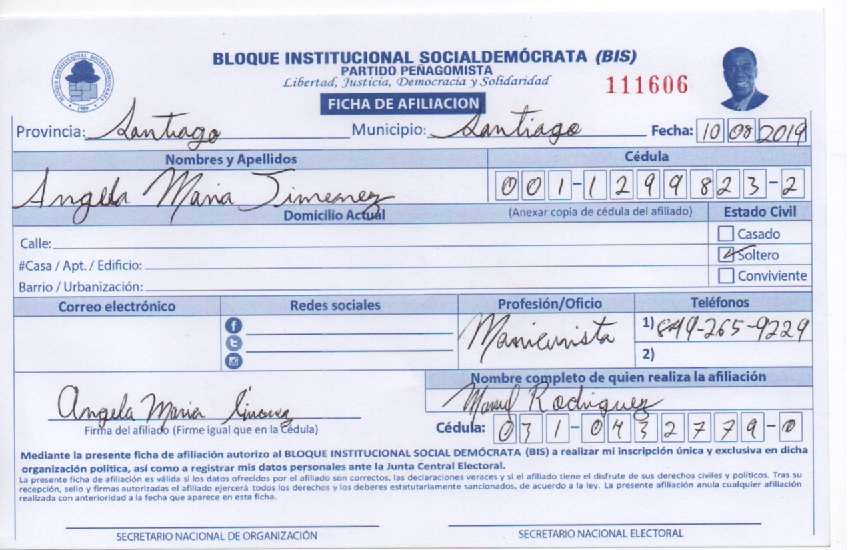 BLOQUE INSTITUCIONAL SOCIALDEMÓCRATA (BIS)
PARTIDO PEÑAGOMISTA
Libertad, Justicia, Democracia y Solidaridad
111606
FICHA DE AFILIACION
Provincia: Santiago Municipio: Santiago Fecha: 10 08 2019
Nombres y Apellidos Cédula
Angela Maria Jimenez 001-1299823-2
Domicilio Actual (Anexar copia de cédula del afiliado) Estado Civil
Calle: Casado
#Casa / Apt. / Edificio: Soltero
Barrio / Urbanización: Conviviente
Correo electrónico Redes sociales Profesión/Oficio Teléfonos
Manicurista 1) 849-265-9229
2)
Nombre completo de quien realiza la afiliación
Angela Maria Jimenez Rodriguez
Firma del afiliado (Firme igual que en la Cédula) Cédula: 031-0432779-0
Mediante la presente ficha de afiliación autorizo al BLOQUE INSTITUCIONAL SOCIAL DEMÓCRATA (BIS) a realizar mi inscripción única y exclusiva en dicha
organización política, así como a registrar mis datos personales ante la Junta Central Electoral.
La presente ficha de afiliación es válida si los datos ofrecidos por el afiliado son correctos, las declaraciones veraces y si el afiliado tiene el disfrute de sus derechos civiles y políticos. Tras su
recepción, sello y firmas autorizadas el afiliado ejercerá todos los derechos y los deberes estatutariamente sancionados, de acuerdo a la ley. La presente afiliación anula cualquier afiliación
realizada con anterioridad a la fecha que aparece en esta ficha.
SECRETARIO NACIONAL DE ORGANIZACIÓN SECRETARIO NACIONAL ELECTORAL